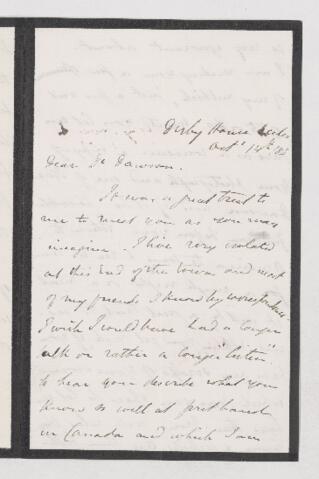 Derby House Eccles
Oct 14th
Dear Dr Dawson.
It was a great treat to
me to meet you as you may
imagine. I live very isolated
at this End of the town and most
of my friends I know by correspondence
I wish I could have had a longer
talk or rather a longer "listen"
to hear you describe what you
know so well at first hand
in Canada and which I am